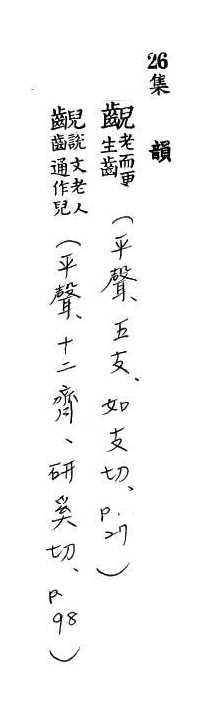 26集韻
齯老而更生齒(平聲、五支、如支切、p.27)
齯說文老人齒齯通作兒(平聲、十二齊、研奚切、p.98)